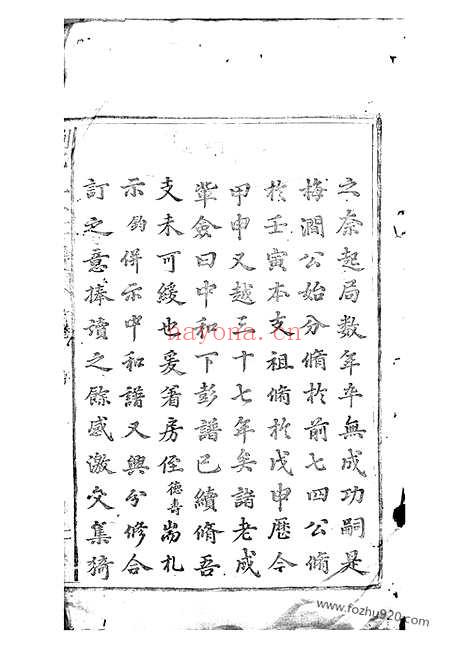 之奈起局数年卒無成功嗣是
梅澗公始分脩於前七四公脩
於壬寅本支祖脩於戊申歷今
甲申又越三十七年矣諸老成
輩僉曰中和下彭譜已續脩吾
支未可緩也爰着房侄德壽耑札
示鈞併示中和譜又興分修合
訂之意捧讀之餘感激交集猗
hayona.cn
www.fozhu920.com